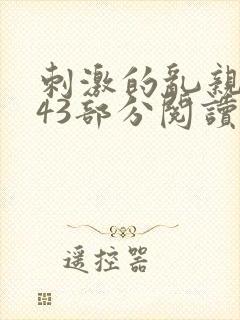 刺激的亂親
43部分閱讀
遥控器